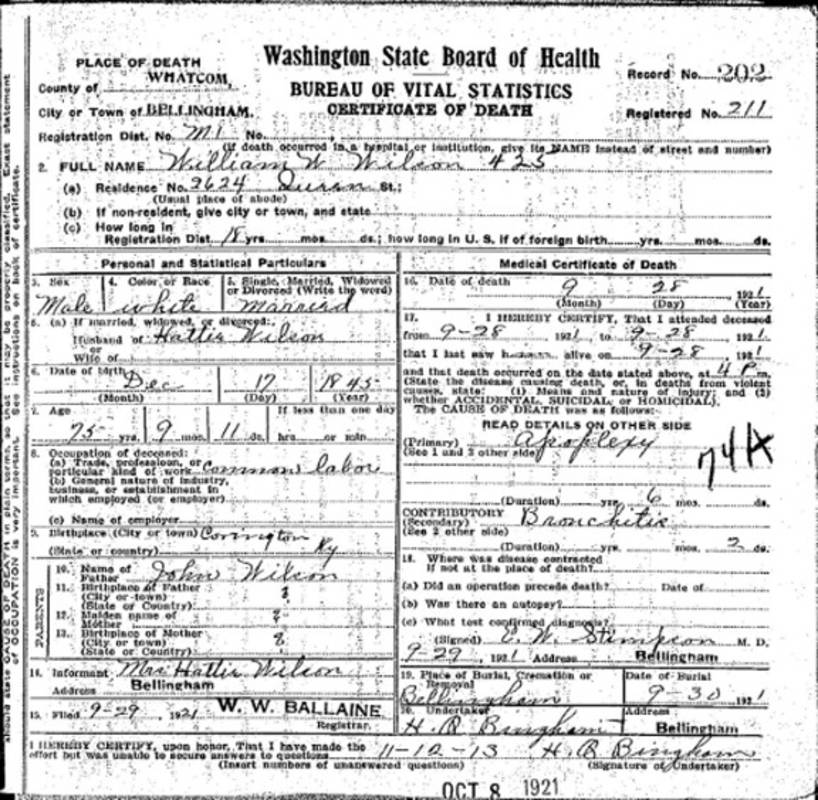 PLACE OF DEATH
WHATCOM,
County of
City or Town of BELLINGHAM.
Registration Dist. No. M1 No.
Washington State Board of Health
BUREAU OF VITAL STATISTICS
CERTIFICATE OF DEATH
Record No. 202
Registered No. 211
(If death occurred in a hospital or institution, give its NAME instead of street and number)
2. FULL NAME William W Wilson 425
(a) Residence No. 2624 St.;
(Usual place of abode)
(b) If non-resident, give city or town, and state
(c) How long in
Registration Dist. 18 yrs. mos. ds.; how long in U. S. if of foreign birth yrs. mos. ds.
Personal and Statistical Particulars
3. Sex 4. Color or Race 5. Single, Married, Widowed
or Divorced (Write the word)
Male white married
(a) If married, widowed, or divorced:
Husband of Hattie Wilson
or
Wife of
6. Date of birth Dec 17 1845
(Month) (Day) (Year)
7. Age If less than one day
75 yrs. 9 mos. 11 ds. hrs. or min.
8. Occupation of deceased:
(a) Trade, profession, or
particular kind of work common labor
(b) General nature of industry,
business, or establishment in
which employed (or employer)
(c) Name of employer
9. Birthplace (City or town) Covington
(State or country) Ky
PARENTS
10. Name of
Father John Wilson
11. Birthplace of Father
(City or town) ?
(State or Country)
12. Maiden name of
Mother ?
13. Birthplace of Mother
(City or town) ?
(State or Country)
14. Informant Mrs Hattie Wilson
Address Bellingham
15. Filed 9-29, 1921 W. W. BALLAINE
Registrar.
Medical Certificate of Death
16. Date of death 9 28 1921
(Month) (Day) (Year)
17. I HEREBY CERTIFY, That I attended deceased
from 9-28 1921 to 9-28 1921
that I last saw h alive on 9-28, 1921
and that death occurred on the date stated above, at 4 P m.
(State the disease causing death, or, in deaths from violent
causes, state: (1) Means and nature of injury; and (2)
whether ACCIDENTAL, SUICIDAL, or HOMICIDAL).
The CAUSE OF DEATH was as follows:
READ DETAILS ON OTHER SIDE
(Primary) Apoplexy
(See 1 and 2 other side)
74A
(Duration) yrs. 6 mos. ds.
CONTRIBUTORY
(Secondary) Bronchitis
(See 2 other side)
(Duration) yrs. mos. 2 ds.
18. Where was disease contracted
if not at the place of death?
(a) Did an operation precede death? Date of
(b) Was there an autopsy?
(c) What test confirmed diagnosis?
(Signed) E. W. Stimpson M. D.
9-29, 1921 Address Bellingham
19. Place of Burial, Cremation or Removal Date of Burial
Bellingham 9-30 1921
20. Undertaker Address
H. B Bingham Bellingham
I HEREBY CERTIFY, upon honor, That I have made the
effort but was unable to secure answers to questions 11-12-13 H. B Bingham
(Insert numbers of unanswered questions) (Signature of Undertaker)
OCT 8 1921
should state CAUSE OF DEATH in plain terms, so that it may be properly classified. Exact statement
of OCCUPATION is very important. See instructions on back of certificate.